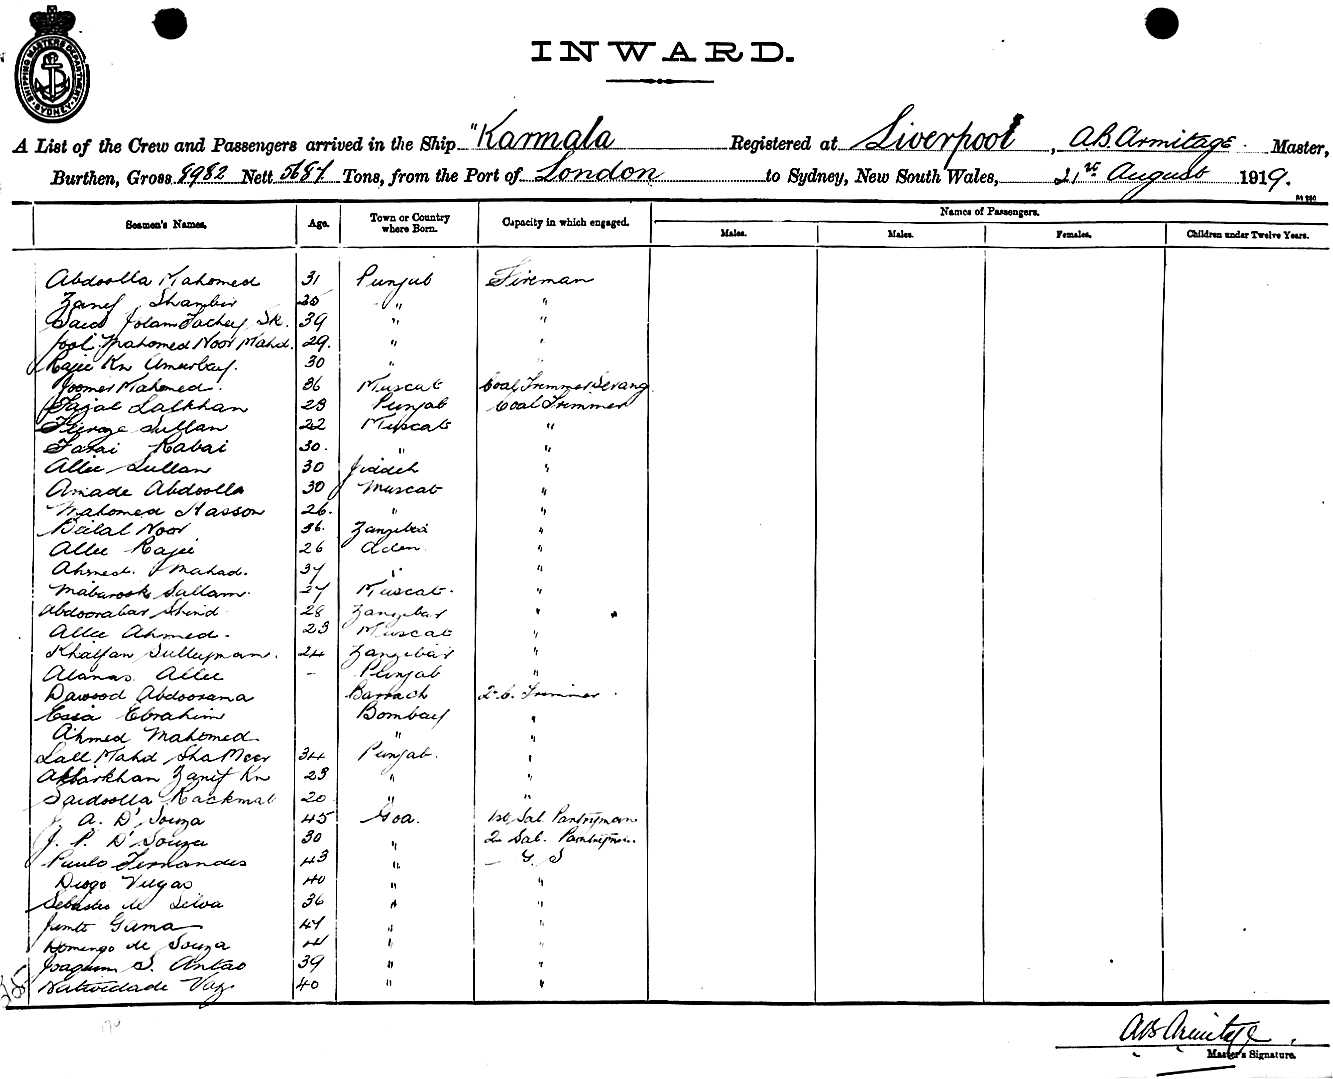 SHIPPING MASTERS DEPARTMENT SYDNEY
INWARD.
A List of the Crew and Passengers arrived in the Ship "Karmala Registered at Liverpool, A.B. Armitage. Master,
Burthen, Gross 8982 Nett Tons, from the Port of London to Sydney, New South Wales, 21st August 1919.
Seamen's Names. Age. Town or Country where Born. Capacity in which engaged. Names of Passengers.
Males. Males. Females. Children under Twelve Years.
Abdoolla Mahomed 31 Punjub Fireman
Shambir " "
Said Golam Sk. 39 " "
Mahomed Noor Mahd. 29. " "
Rajee Kn 30 "
Joomer Mahomed. 36 Muscat Coal Trimmer Serang
Fazal Lalkhan 23 Punjab Coal Trimmer
Sultan 22 Muscat "
Faraj Rabai 30. " "
Allee Sultan 30 Jiddeh "
Amade Abdoolla 30 Muscat "
Mahomed Hasson 26. " "
Bilal Noor 36. "
Allee Rajee 26 Aden "
Ahmed. Mahad. 37 " "
Mabarook Sallam. 27 Muscat. "
28 Zanzibar "
Allee Ahmed. 23 Muscat "
Khalfan Sulleyman. 24 Zanzibar "
Allee – Punjab "
Dawood Abdoorama 2nd C. Trimmer.
Essa Ebrahim Bombay "
Ahmed Mahomed. " "
Lall Mahd Sha Meer 34 Punjab. "
Akbarkhan Zanif Kn 23 " "
Saidoolla Rackmat 20 " "
J. A. D'Souza 45 Goa. 1st Sal. Pantryman
J. P. D'Souza 30 " 2nd Sal. Pantryman.
Paulo Fernandes 43 " – G. S
Diogo Viegas 40 " "
de Silva 36 " "
Gama " "
Domingo de Souza " "
Joaquim S. Antao 39 " "
Natividade Vaz. 40 " "
AB Armitage.
Master's Signature.